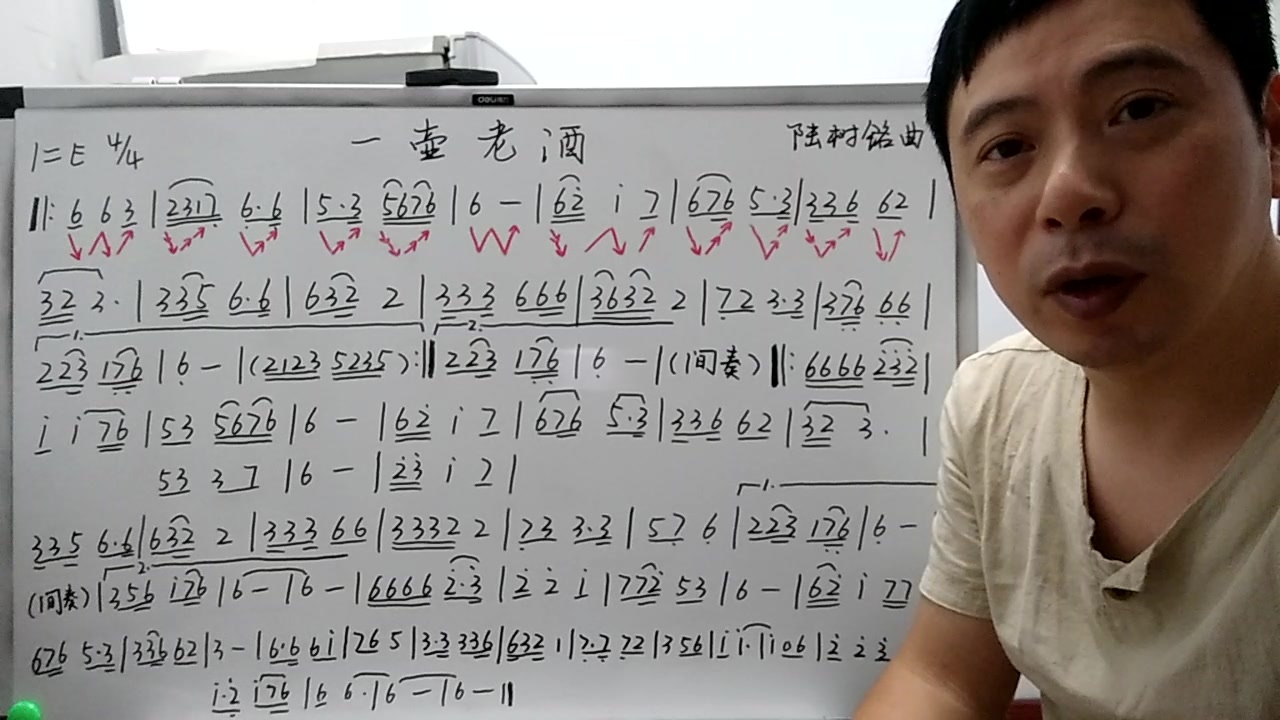 deli
1=E 4/4 一壶老酒 陆树铭曲
‖: 6 6 3 | 2317 6·6 | 5·3 5676 | 6 - | 62 i 7 | 676 5·3 | 336 62 |
32 3· | 335 6·6 | 632 2 | 333 666 | 3632 2 | 72 3·3 | 376 66 |
1. 2.
223 176 | 6 - | (2123 5235) :‖ 223 176 | 6 - | (间奏) ‖: 6666 232 |
i i 76 | 53 5676 | 6 - | 62 i 7 | 676 5·3 | 336 62 | 32 3· |
53 3 7 | 6 - | 23 i 7 |
1.
335 6·6 | 632 2 | 333 66 | 3332 2 | 73 3·3 | 57 6 | 223 176 | 6 -
2.
(间奏) | 356 i76 | 6 - | 6 - | 6666 2·3 | 2 2 i | 772 53 | 6 - | 62 i 77
676 5·3 | 336 62 | 3 - | 6·6 6i | 76 5 | 3·3 336 | 632 1 | 7·7 72 | 3 56 | i i· | i06 | 2 2 3
i·2 i76 | 6 6· | 6 - | 6 - ‖